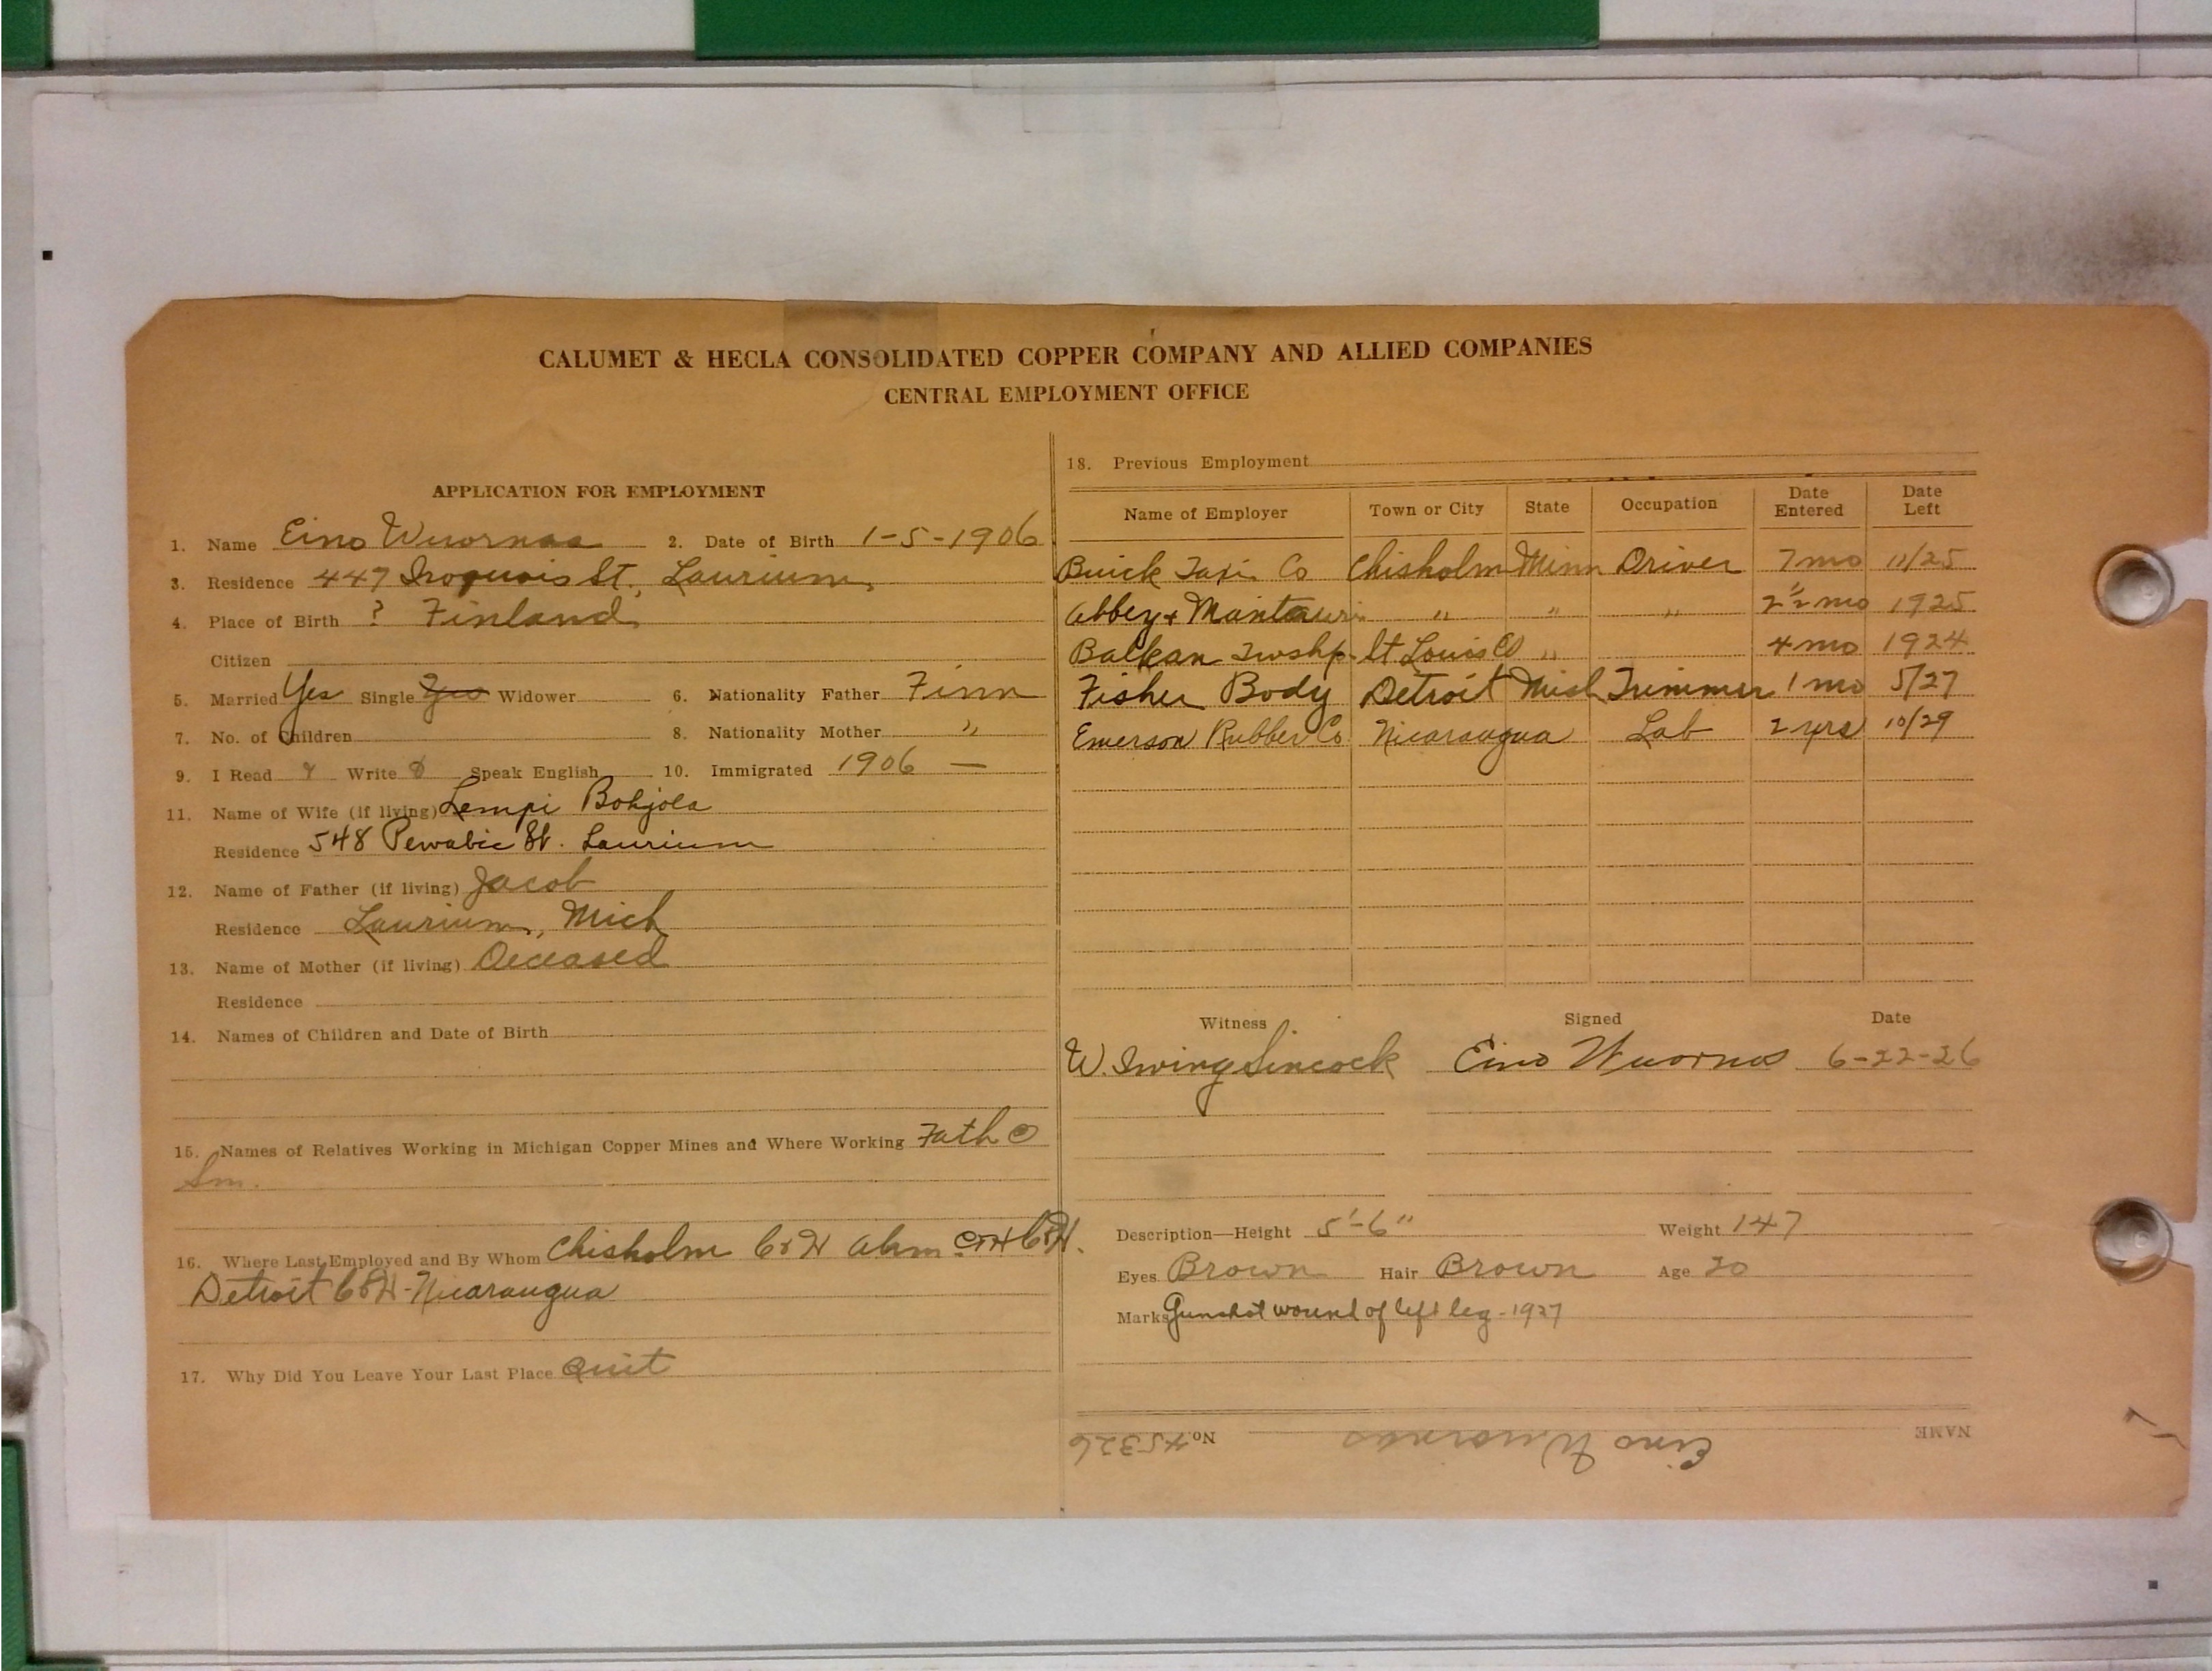 CALUMET & HECLA CONSOLIDATED COPPER COMPANY AND ALLIED COMPANIES
CENTRAL EMPLOYMENT OFFICE
APPLICATION FOR EMPLOYMENT
1. Name Eino Wuornas 2. Date of Birth 1-5-1906
3. Residence 447 Iroquois St. Laurium
4. Place of Birth ? Finland
Citizen
5. Married Yes Single Yes Widower 6. Nationality Father Finn
7. No. of Children 8. Nationality Mother "
9. I Read Write Speak English 10. Immigrated 1906 —
11. Name of Wife (if living) Lempi Bohjola
Residence 548 Pewabic St. Laurium
12. Name of Father (if living) Jacob
Residence Laurium, Mich
13. Name of Mother (if living) Deceased
Residence
14. Names of Children and Date of Birth
15. Names of Relatives Working in Michigan Copper Mines and Where Working Fath
Sm.
16. Where Last Employed and By Whom Chisholm C&H Ahm C&H
Detroit C&H - Nicaraugua
17. Why Did You Leave Your Last Place Quit
18. Previous Employment
Name of Employer Town or City State Occupation Date Entered Date Left
Buick Taxi Co Chisholm Minn Driver 7 mo 11/25
Abbey & " " " 2½ mo 1925
Balkan Twshp. St Louis Co " 4 mo 1924
Fisher Body Detroit Mich Trimmer 1 mo 5/27
Emerson Rubber Co Nicaraugua Lab 2 yrs 10/29
Witness Signed Date
W. Irving Sincock Eino Wuornos 6-22-26
Description—Height 5'-6" Weight 147
Eyes Brown Hair Brown Age 20
Marks Gunshot wound of left leg - 1927
NAME Eino Wuornos No. 45326